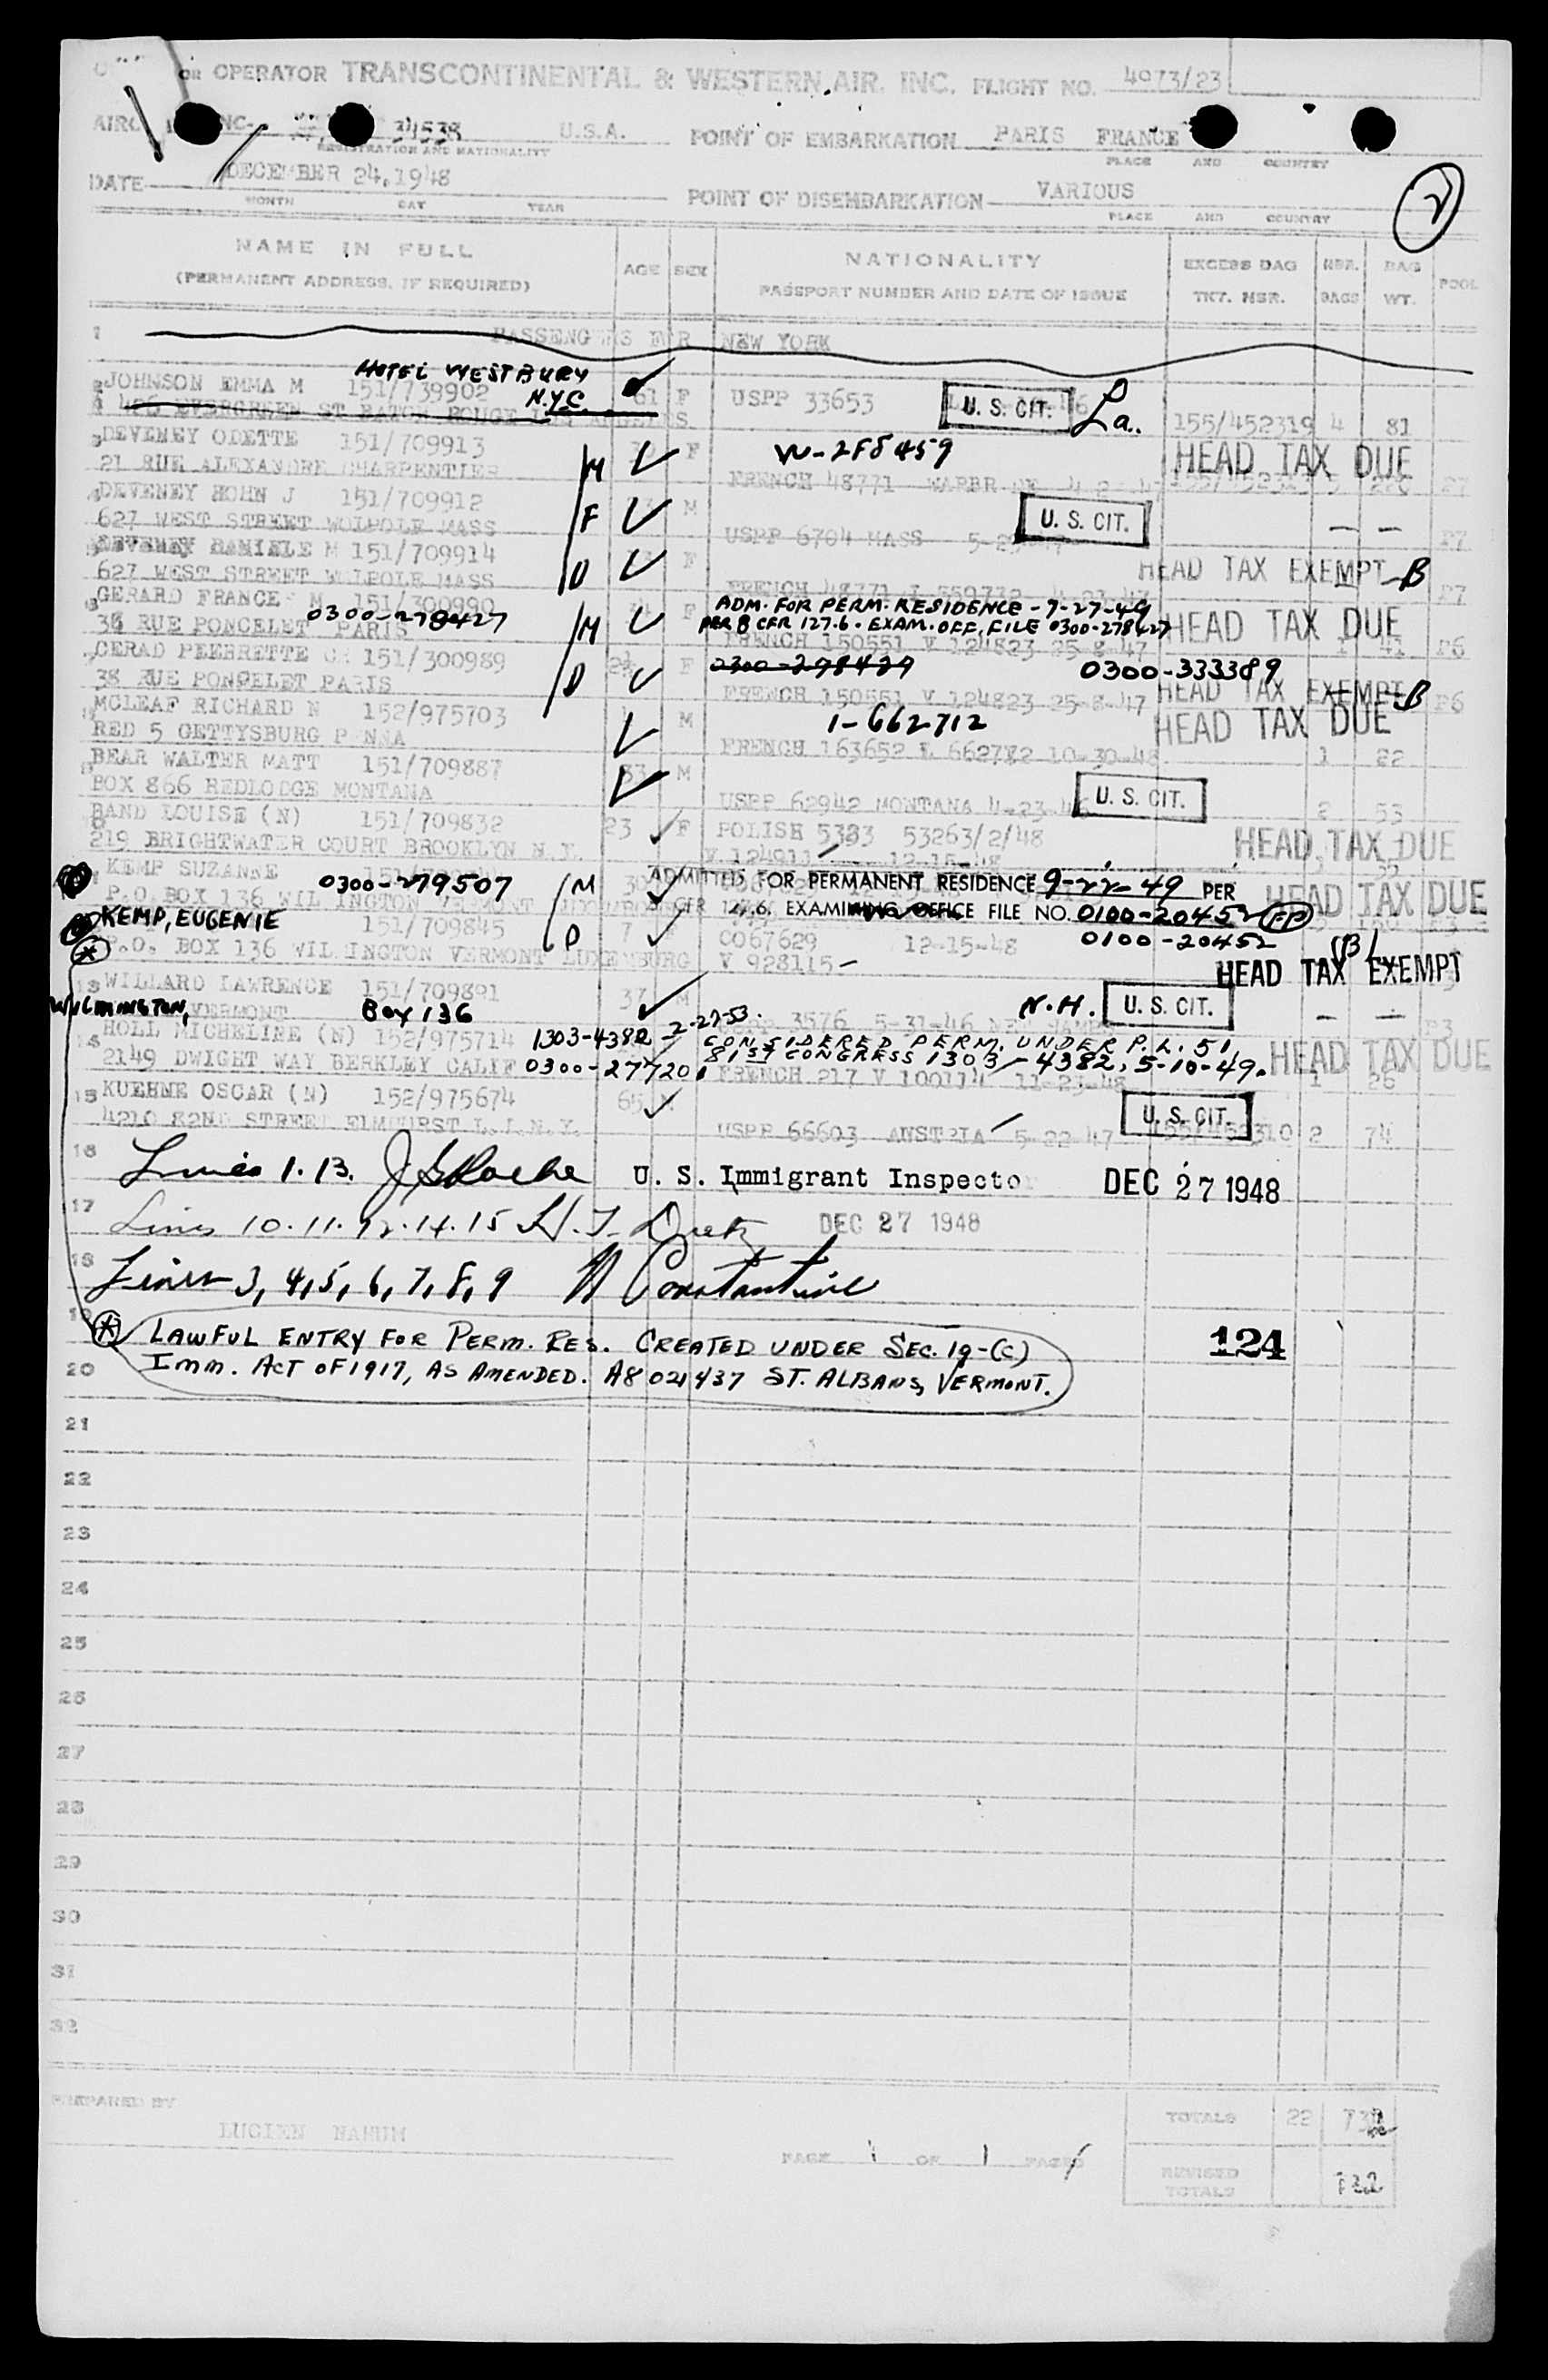 OR OPERATOR TRANSCONTINENTAL & WESTERN AIR, INC. FLIGHT NO. 4073/23
NC- 34538 U.S.A. POINT OF EMBARKATION PARIS FRANCE
REGISTRATION AND NATIONALITY PLACE AND COUNTRY
DATE DECEMBER 24, 1948 POINT OF DISEMBARKATION VARIOUS
MONTH DAY YEAR PLACE AND COUNTRY
2
NAME IN FULL AGE SEX NATIONALITY EXCESS BAG NBR. BAG POOL
(PERMANENT ADDRESS, IF REQUIRED) PASSPORT NUMBER AND DATE OF ISSUE TKT. NBR. BAGS WT.
1 PASSENGERS FOR NEW YORK
HOTEL WESTBURY
JOHNSON EMMA M 151/739902 N.Y.C. 61 F USPP 33653 U. S. CIT. La.
EVERGREEN ST BATON ROUGE 155/452319 4 81
DEVENEY ODETTE 151/709913 F W-2F8459 HEAD TAX DUE
21 RUE ALEXANDRE CHARPENTIER M FRENCH 48771
DEVENEY HOHN J 151/709912 M U. S. CIT.
627 WEST STREET WOLPOLE MASS F USPP 6704 MASS
DEVENEY DANIELE M 151/709914 F HEAD TAX EXEMPT B
627 WEST STREET WOLPOLE MASS D FRENCH 48771
GERARD FRANCE M 151/300990 F ADM. FOR PERM. RESIDENCE - 7-27-49
0300-278427 PER 8 CFR 127.6. EXAM. OFF. FILE 0300-278427 HEAD TAX DUE
38 RUE PONCELET PARIS M FRENCH 150551 V 124823 25-8-47 1 41 P6
GERAD PEERRETTE 151/300989 2½ F 0300-298429 0300-333389
38 RUE PONCELET PARIS D FRENCH 150551 V 124823 25-8-47 HEAD TAX EXEMPT B P6
MCLEAF RICHARD N 152/975703 M 1-662712 HEAD TAX DUE
RED 5 GETTYSBURG PENNA FRENCH 163652 10-30-48 1 22
BEAR WALTER MATT 151/709887 33 M U. S. CIT.
BOX 866 REDLODGE MONTANA USPP 62942 MONTANA 4-23-46 2 53
BAND LOUISE (N) 151/709832 23 F POLISH 5383 53263/2/48 HEAD TAX DUE
219 BRIGHTWATER COURT BROOKLYN N.Y. V 124911 12-15-48
KEMP SUZANNE 0300-279507 M ADMITTED FOR PERMANENT RESIDENCE 9-22-49 PER HEAD TAX DUE
P.O. BOX 136 WILMINGTON VERMONT CFR EXAMINING OFFICE FILE NO. 0100-20452 FP
KEMP, EUGENIE 151/709845 D 7 CO67629 12-15-48 0100-20452
P.O. BOX 136 WILMINGTON VERMONT LUXEMBURG V 928115 HEAD TAX EXEMPT
WILLARD LAWRENCE 151/709891 37 M N.H. U. S. CIT.
WILMINGTON, VERMONT BOX 136 3576 5-31-46
HOLL MICHELINE (N) 152/975714 1303-4382 2-27-53. CONSIDERED PERM. UNDER P.L. 51
2149 DWIGHT WAY BERKLEY CALIF 0300-277201 81ST CONGRESS 1303-4382, 5-10-49. HEAD TAX DUE
FRENCH 217 V 100114 11-23-48 1 26
15 KUEHNE OSCAR (N) 152/975674 65 M U. S. CIT.
4210 82ND STREET ELMHURST L.I.N.Y. USPP 66603 AUSTRIA 5-22-47 155/452310 2 74
16 Lines 1. 13. U. S. Immigrant Inspector DEC 27 1948
17 Lines 10.11.12.14.15 DEC 27 1948
18 Lines 3, 4, 5, 6, 7, 8, 9 Constantine
19 * LAWFUL ENTRY FOR PERM. RES. CREATED UNDER SEC. 19-(C) 124
20 IMM. ACT OF 1917, AS AMENDED. A8 021437 ST. ALBANS, VERMONT.
21
22
23
24
25
26
27
28
29
30
31
32
PREPARED BY
LUCIEN NAHUM
PAGE 1 OF 1 PAGES
TOTALS 22
REVISED
TOTALS